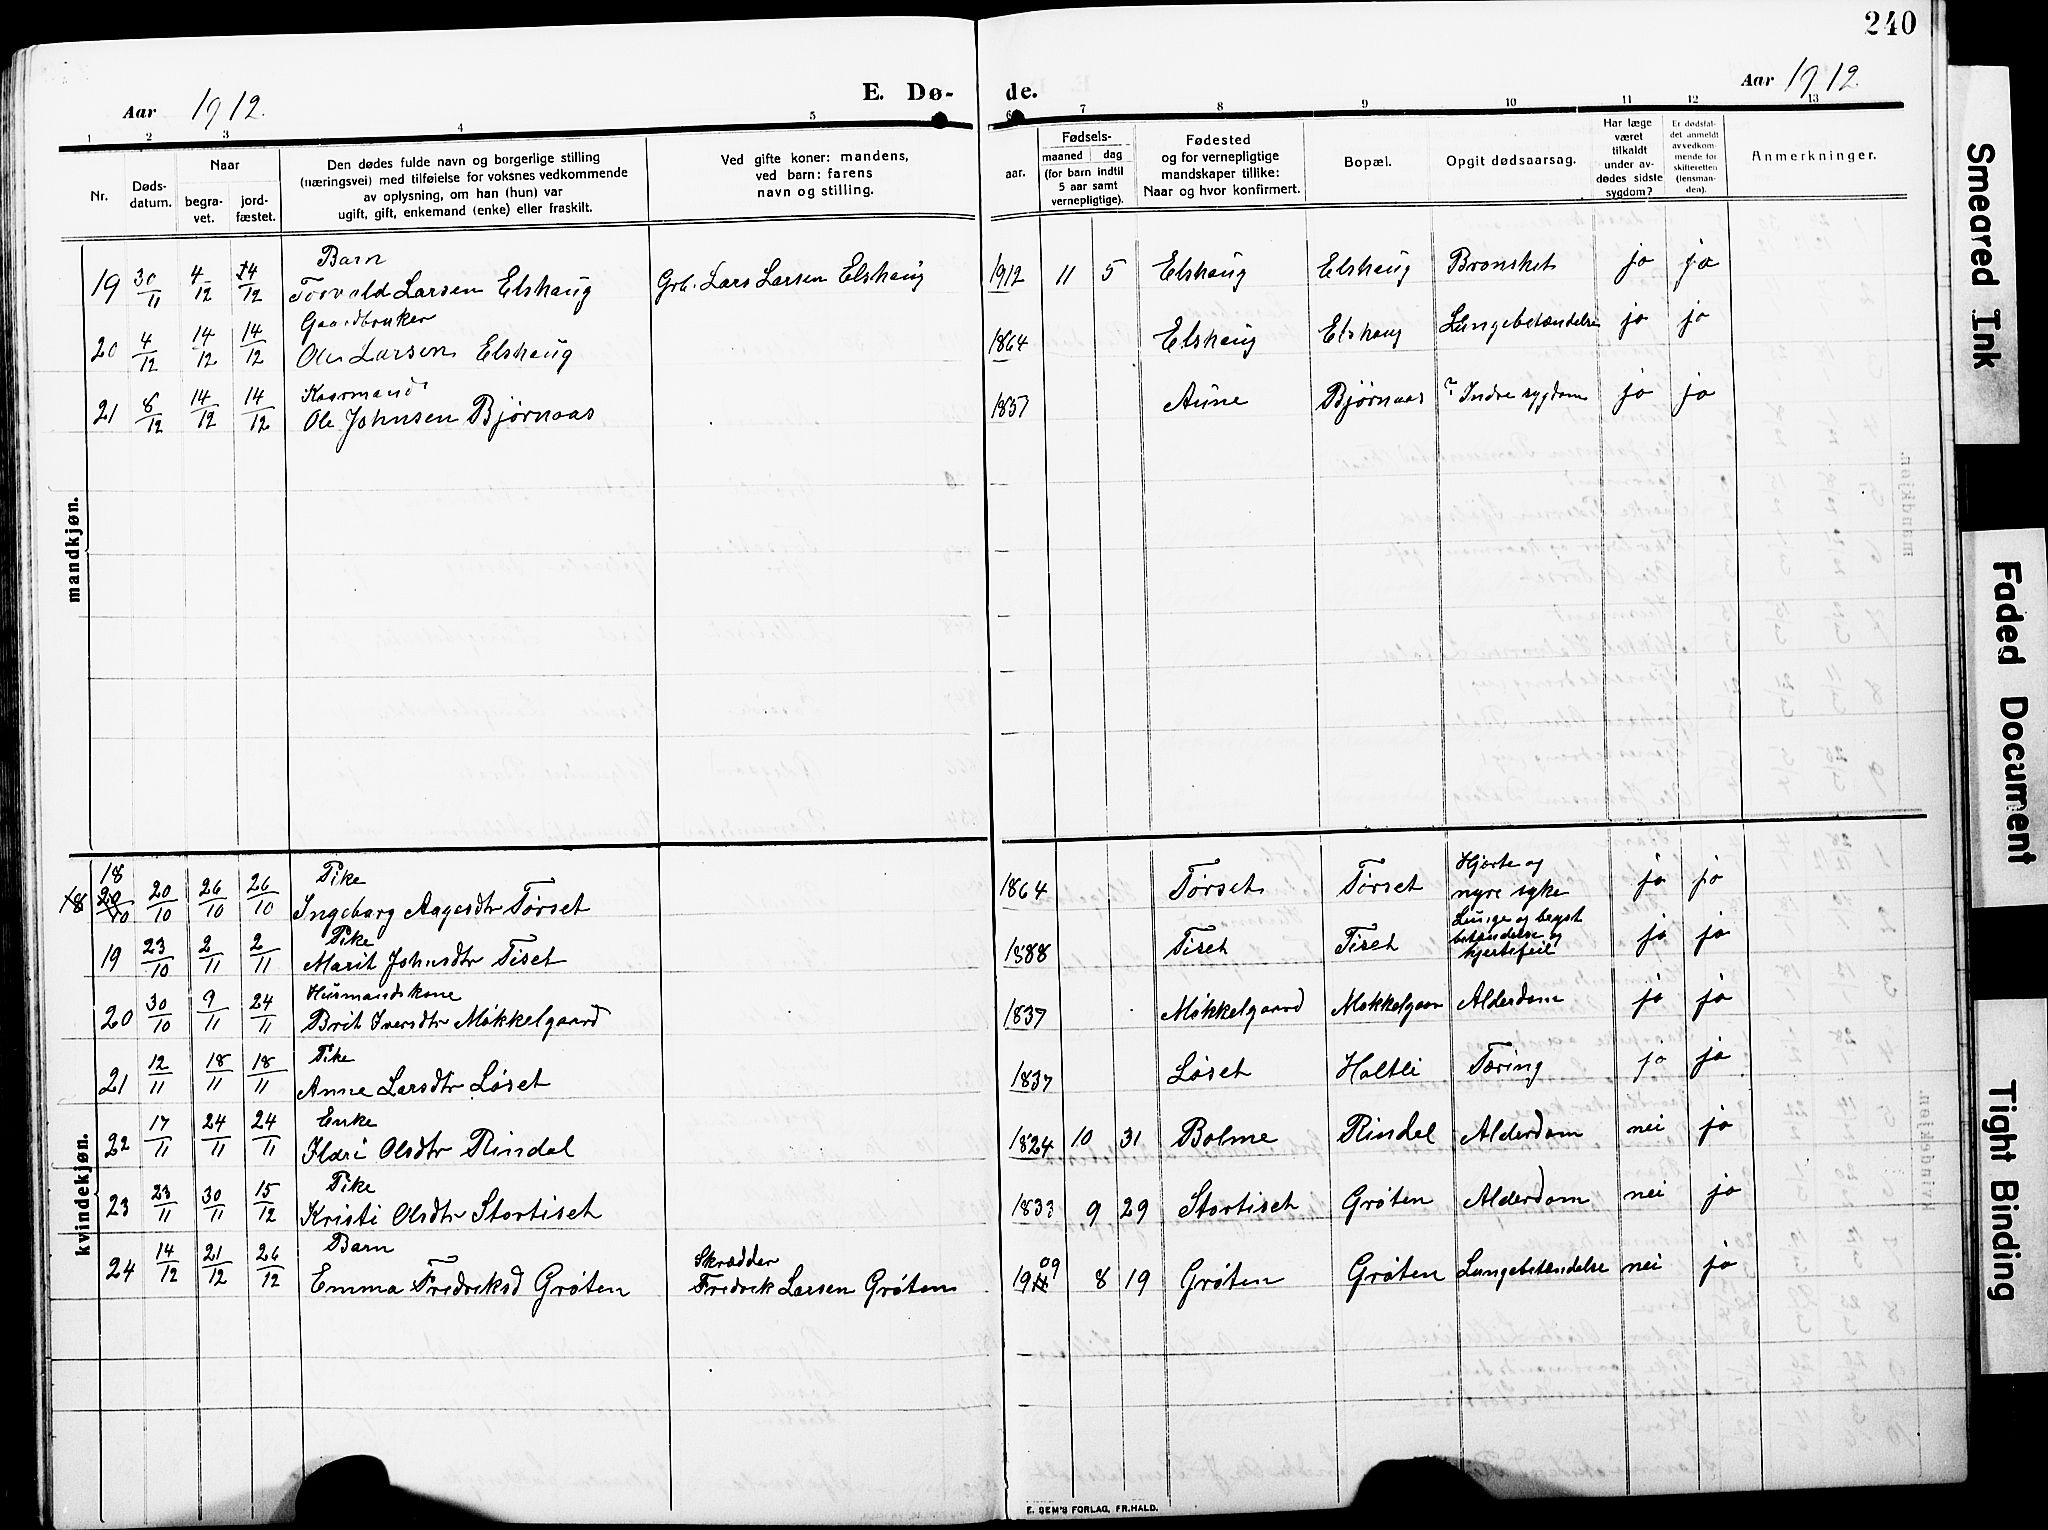 240
Aar 1912.
E. Dø-
de.
Aar 1912.
1 2 3 4 5 6 7 8 9 10 11 12 13
Nr.
Døds-
datum.
Naar
begra-
vet.
jord-
fæstet.
Den dødes fulde navn og borgerlige stilling
(næringsvei) med tilføielse for voksnes vedkommende
av oplysning, om han (hun) var
ugift, gift, enkemand (enke) eller fraskilt.
Ved gifte koner: mandens,
ved barn: farens
navn og stilling.
Fødsels-
aar.
maaned dag
(for barn indtil
5 aar samt
vernepligtige).
Fødested
og for vernepligtige
mandskaper tillike:
Naar og hvor konfirmert.
Bopæl.
Opgit dødsaarsag.
Har læge
været
tilkaldt
under av-
dødes sidste
sygdom?
Er dødsfal-
det anmeldt
av vedkom-
mende for
skifteretten
(lensman-
den).
Anmerkninger.
mandkjøn.
Barn
19 30/11 4/12 14/12 Torvald Larsen Elshaug Grb. Lars Larsen Elshaug 1912 11 5 Elshaug Elshaug Bronsket ja ja
Gaardbruker
20 4/12 14/12 14/12 Ole Larsen Elshaug 1864 Elshaug Elshaug Lungebetændelse ja ja
Kaarmand
21 8/12 14/12 14/12 Ole Johnsen Bjørnaas 1837 Aune Bjørnaas ? Indre sygdom ja ja
kvindekjøn.
18 Pike Hjerte og
18 20/10 20/10 26/10 26/10 Ingeborg Aagesdtr Tørset 1864 Tørset Tørset nyre syke ja ja
Pike Lunge og bryst
19 23/10 2/11 2/11 Marit Johnsdtr Tiset 1888 Tiset Tiset betændelse og ja ja
hjertefeil
Husmandskone
20 30/10 9/11 24/11 Brit Iversdtr Møkkelgaard 1837 Møkkelgaard Møkkelgaar Alderdom ja ja
Pike
21 12/11 18/11 18/11 Anne Larsdtr Løset 1837 Løset Holtli Tæring ja ja
Enke
22 17/11 24/11 24/11 Ildri Olsdtr Rindal 1824 10 31 Bolme Rindal Alderdom nei ja
Pike
23 23/11 30/11 15/12 Kristi Olsdtr Stortiset 1833 9 29 Stortiset Grøten Alderdom nei ja
Barn Skrædder
24 14/12 21/12 26/12 Emma Fredriksd Grøten Fredrik Larsen Grøten 1909 8 19 Grøten Grøten Lungebetændelse nei ja
E. SEM'S FORLAG, FR.HALD.
Smeared Ink
Faded Document
Tight Binding